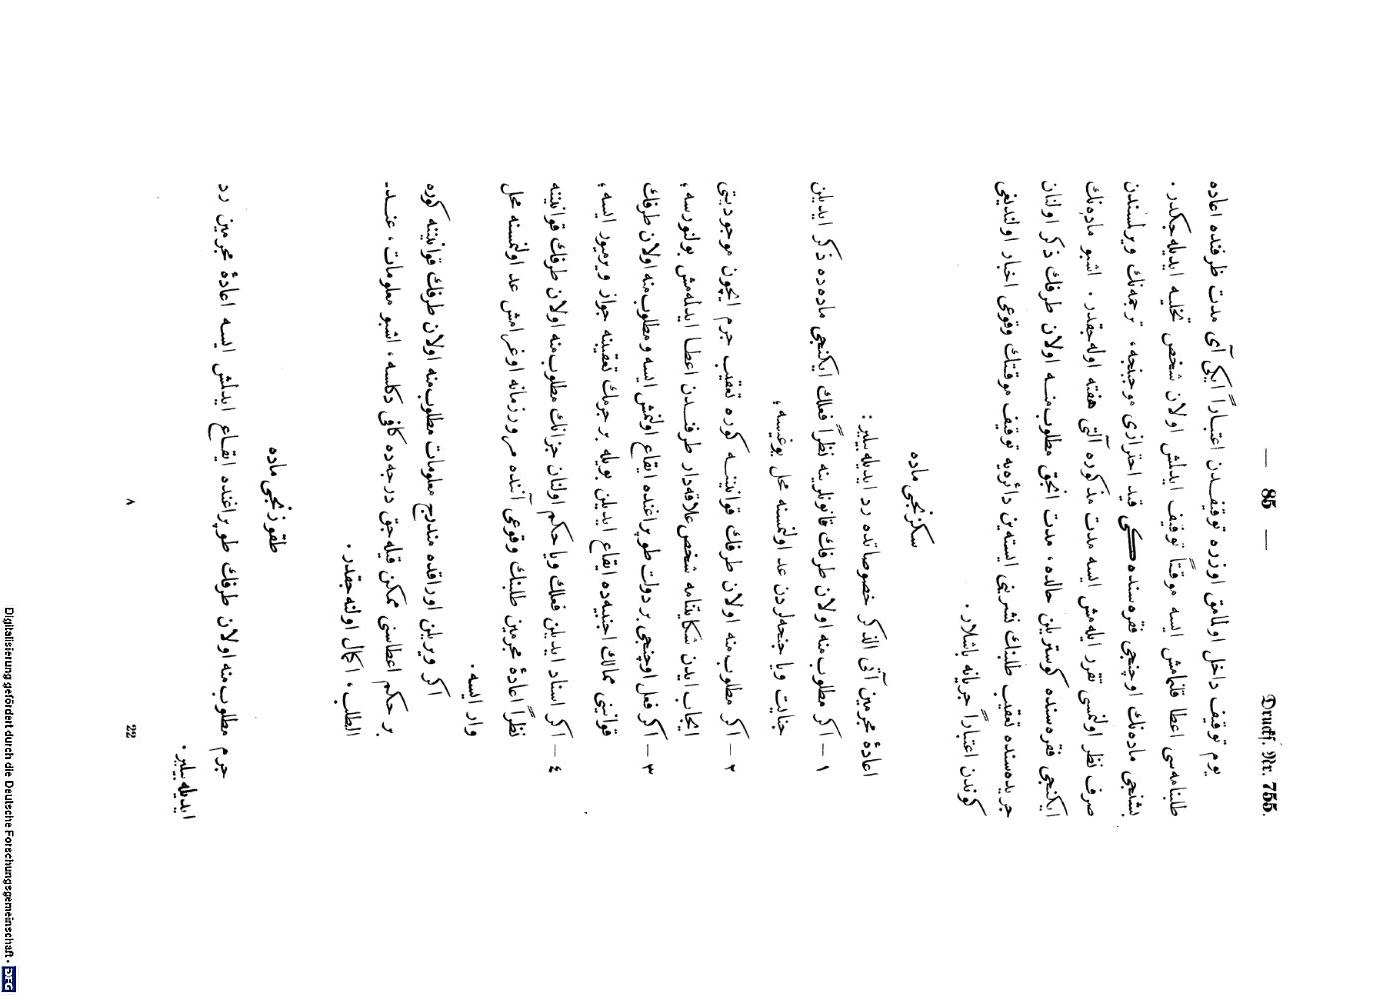 — 85 —
Druckf. Nr. 755.
يوم توقيف داخل اولمامق اوزره توقيفدن اعتباراً ايكى آى مدت ظرفنده اعاده
طلبنامه‌سى اعطا قلنمامش ايسه موقتاً توقيف ايدلمش اولان شخص تخليه ايديله‌جكدر.
بشنجى ماده‌نك اوچنجى فقره‌سنده‌كى قيد احترازى موجبنجه، ترجمه‌نك ويرلسندن
صرف نظر اولنمسى تقرر ايله‌مش ايسه مدت مذكوره آلتى هفته اوله‌جقدر. اشبو ماده‌نك
ايكنجى فقره‌سنده كوستريلن حالده، مدت انجق مطلوب‌منه اولان طرفك ذكر اولنان
جريده‌سنده تعقيب طلبنك نشرينى ايستەين دائره‌يه توقيف موقتك وقوعى اخبار اولنديغى
كوندن اعتباراً جريانه باشلار.
سكزنجى ماده
اعادهٔ مجرمين آتى الذكر خصوصاتده رد ايديله‌بيلير:
١ — اكر مطلوب‌منه اولان طرفك قانونلرينه نظراً فعلك ايكنجى ماده‌ده ذكر ايديلن
جنايت ويا جنحه‌لردن عد اولنمسنه محل يوغيسه؛
٢ — اكر مطلوب‌منه اولان طرفك قوانيننه كوره تعقيب جرم ايچون موجوديتى
ايجاب ايدن شكايتنامه شخص علاقه‌دار طرفندن اعطا ايديله‌مش بولنورسه؛
٣ — اكر فعل اوچنجى بر دولت طوپراغنده ايقاع اولنمش ايسه و مطلوب‌منه اولان طرفك
قوانينى ممالك اجنبيه‌ده ايقاع ايديلن بويله بر جرمك تعقيبنه جواز ويرميور ايسه؛
٤ — اكر اسناد ايديلن فعلك ويا حكم اولنان جزانك مطلوب‌منه اولان طرفك قوانيننه
نظراً اعادهٔ مجرمين طلبنك وقوعى آننده مرور زمانه اوغرامش عد اولنمسنه محل
وار ايسه.
اكر ويريلن اوراقده مندرج معلومات مطلوب‌منه اولان طرفك قوانيننه كوره
بر حكم اعطاسنى ممكن قيله‌جق درجه‌ده كافى دكلسه، اشبو معلومات، عند ـ
الطلب، اكمال اولنه‌جقدر.
طقوزنجى ماده
جرم مطلوب‌منه اولان طرفك طوپراغنده ايقاع ايدلمش ايسه اعادهٔ مجرمين رد
ايديله‌بيلير.
٨
22
Digitalisierung gefördert durch die Deutsche Forschungsgemeinschaft - DFG